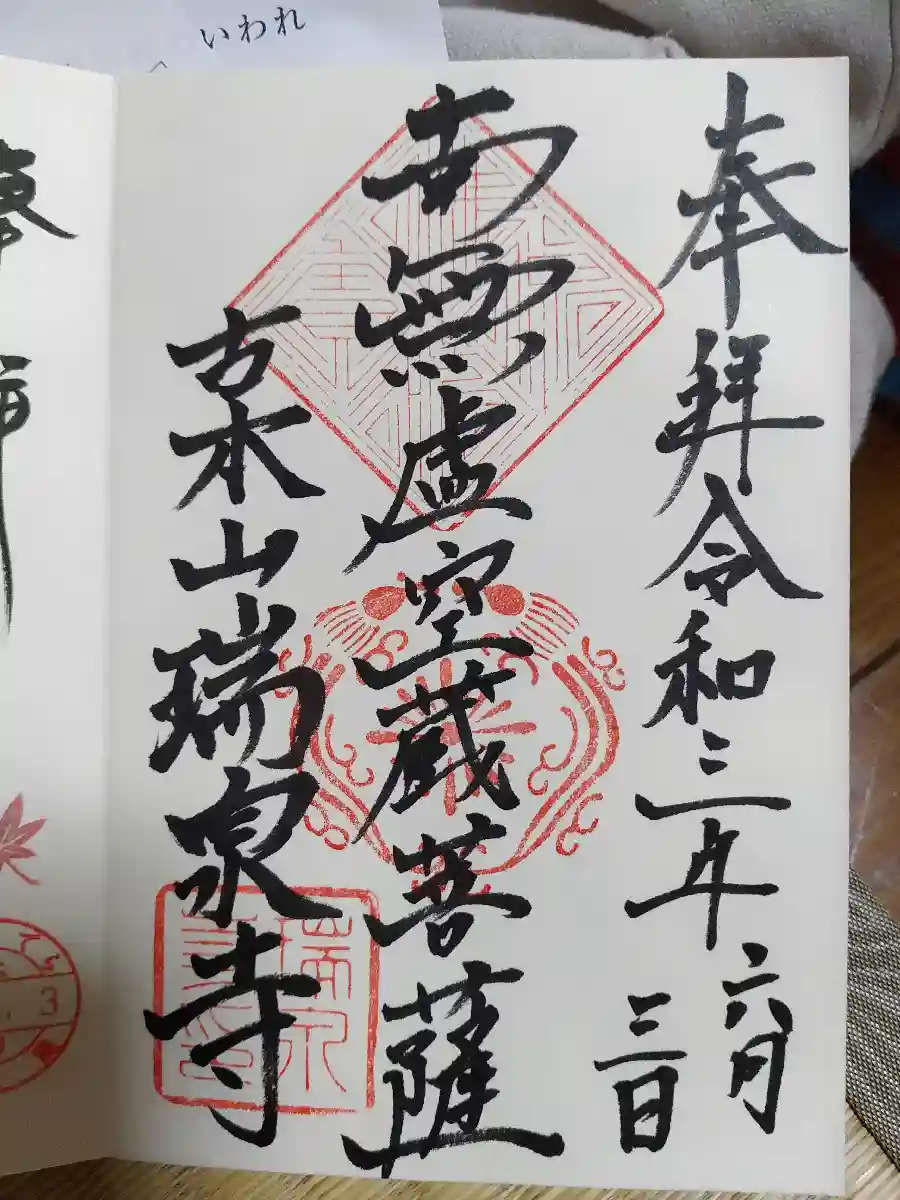 いわれ
奉拝令和三年六月
三日
南無虚空蔵菩薩
古木山瑞泉寺
瑞泉
奉拝
3